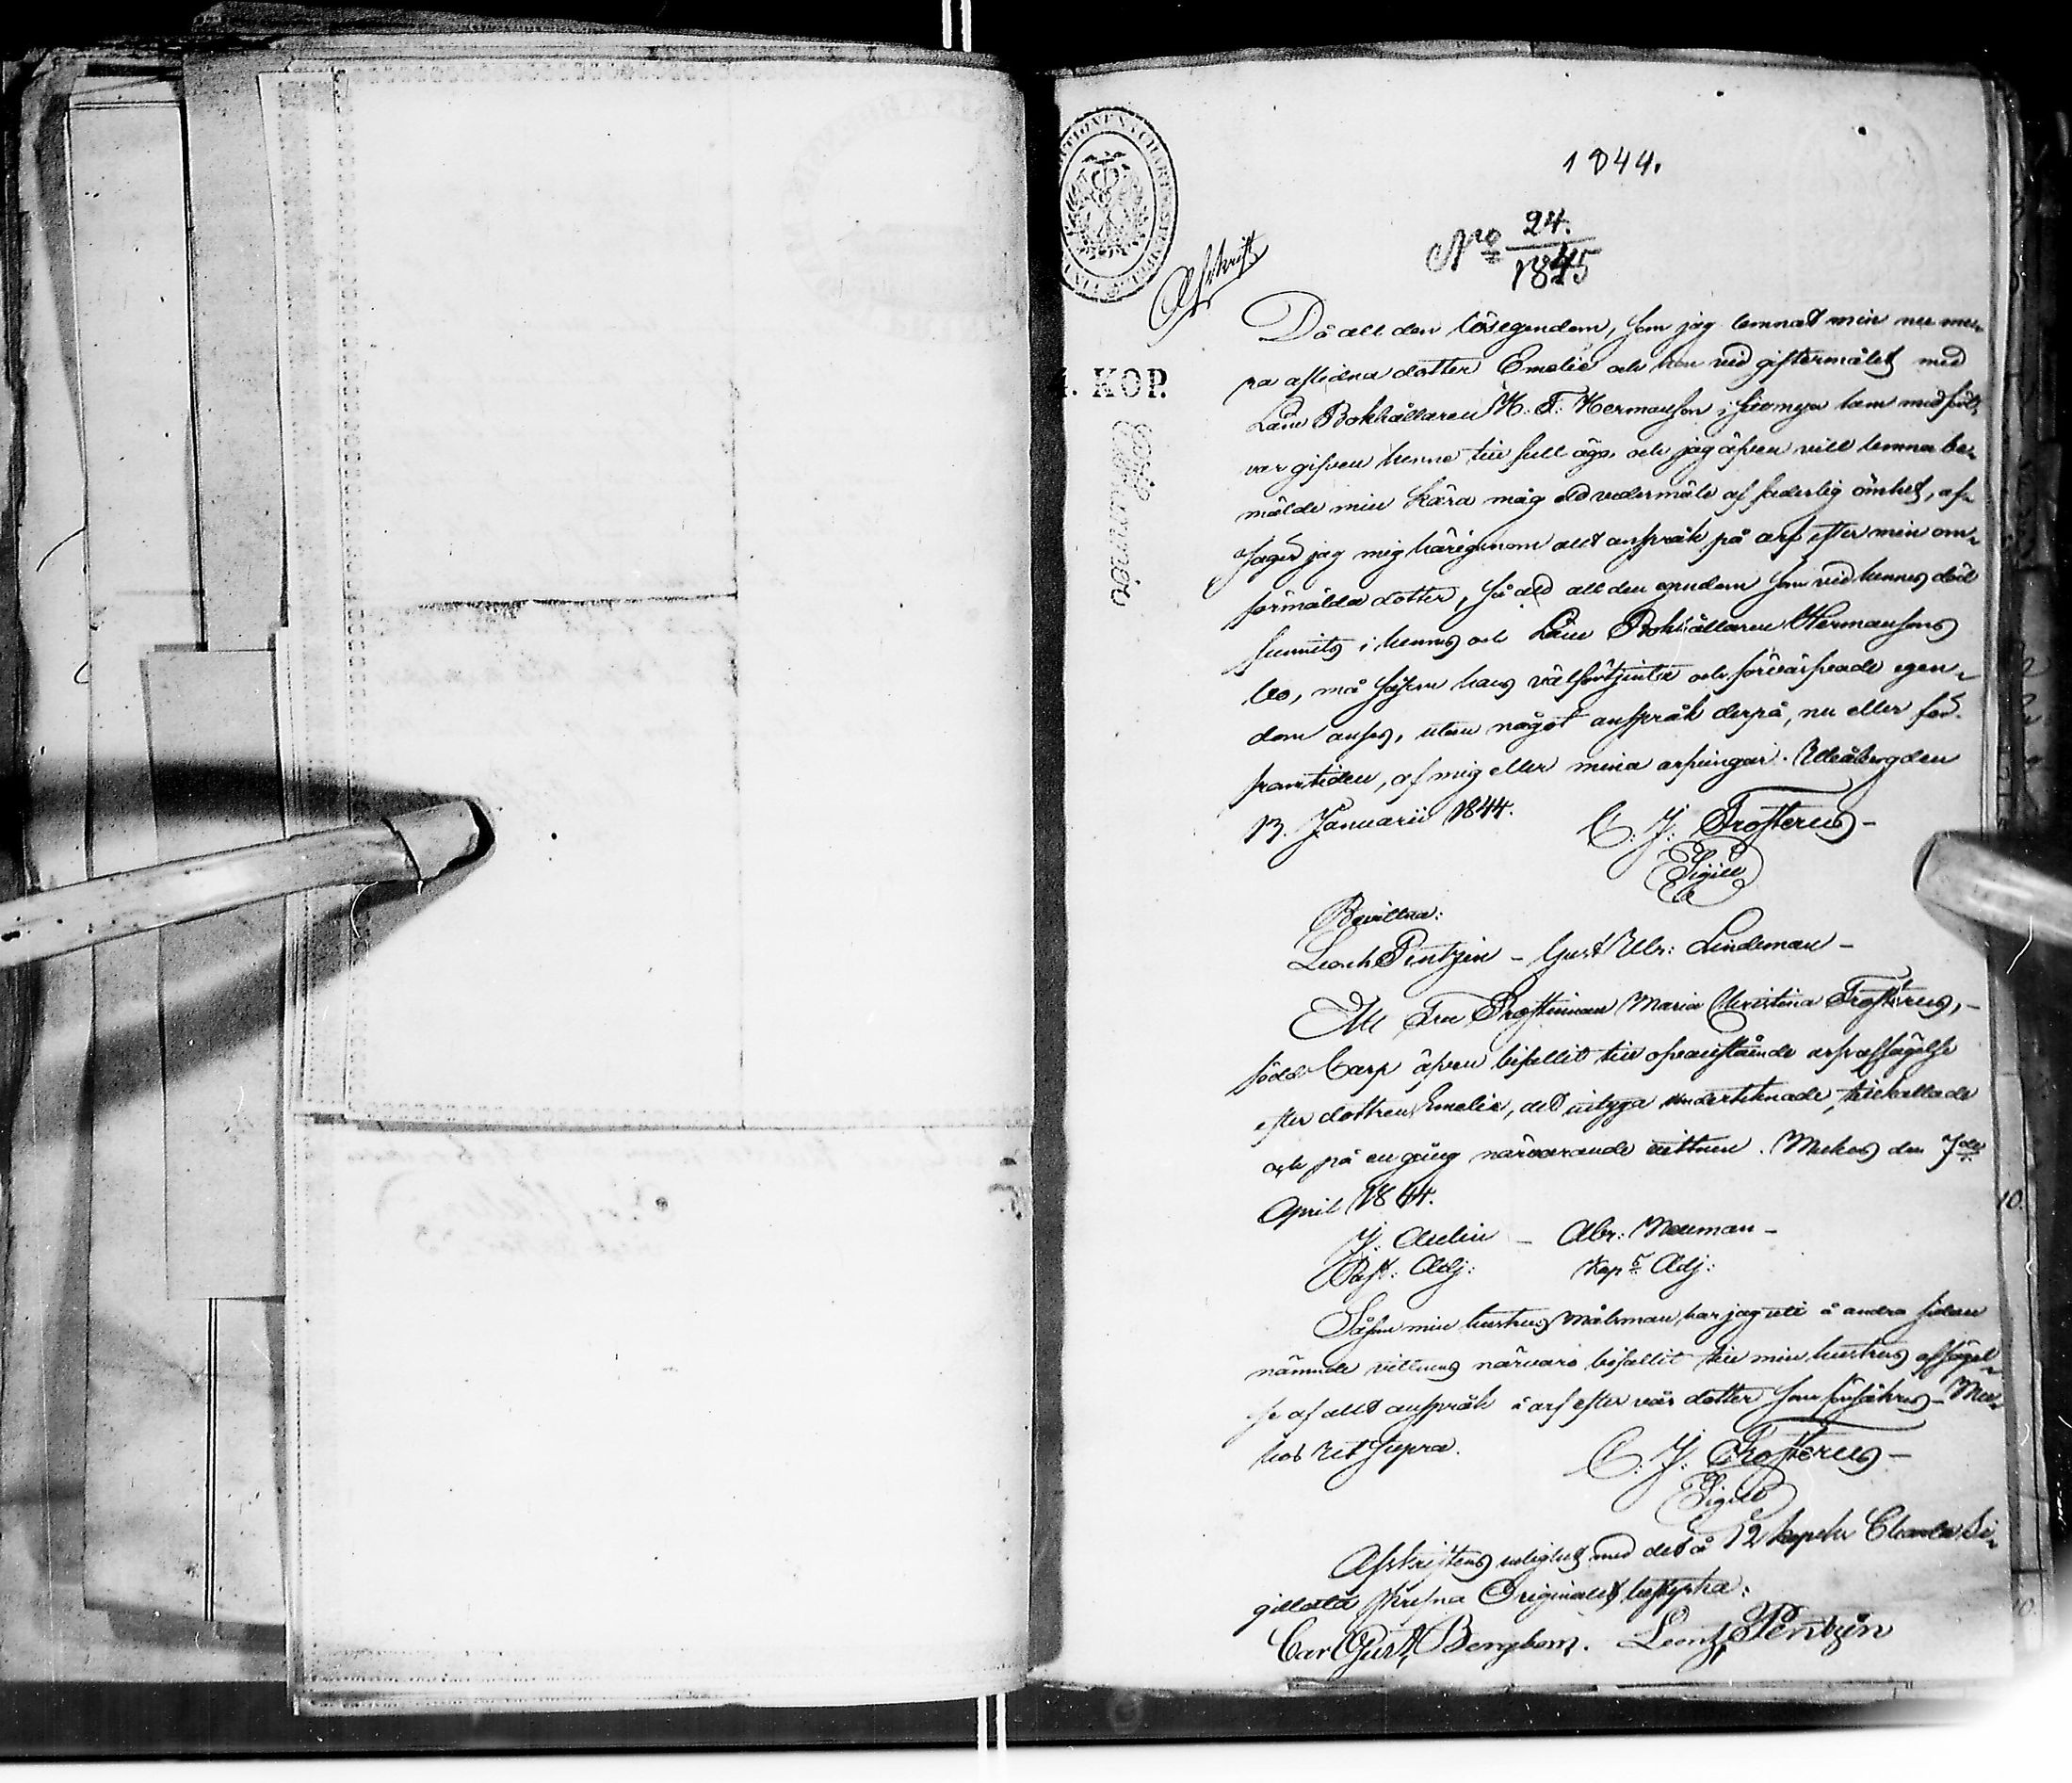 1844.
No 24.
1845
Afskrift
4. KOP.
Då all den lösegendom, som jag lemnat min nu me-
ra aflidna dotter Emelie och hon vid giftermålet med
Läne Bokhållaren H: F: Hermanson i sitt
var gifven henne till full ägo och jag äfven vill lemna be-
mälde min kära måg ett vedermäle af faderlig ömhet, af-
säger jag mig härigenom allt anspråk på arf efter min om-
förmälda dotter, så att all den egendom som vid hennes död
funnits i hennes och Läne Bokhållaren Hermansons
bo, må såsom hans välförtjenta och förvärfvade egen-
dom anses, utan något anspråk derpå, nu eller för
framtiden, af mig eller mina arfvingar. Uleåborg den
13. Januarii 1844.
C. J. Frosterus-
Sigill
Bevittna:
Leonh Pentzin - Gust Ulr: Lindeman -
Att Fru Prostinnan Maria Christina Frosterus,-
född Carp äfven bifallit till ofvanstående arfsafsägelse
efter dottren Emelie, det intyga undertecknade, tillkallade
och på en gång närvarande vittnen. Muhos den 7de
April 1844.
J. Aulin - Abr: Neuman -
Past: Adj: Kap:s Adj:
Såsom min hustrus Målsman, har jag uti å andra sidan
nämnde vittnens närvaro bifallit till min hustrus afsägel-
se af allt anspråk i arf efter vår dotter som försäkras - Mu-
hos Ut Supra.
C. J. Frosterus -
Sigill
Afskriftens enlighet med det å 12 kopeks Charta Si-
gillata skrifna Originalet bestyrka:
Carl Gust, Bergbom. Leonh, Pentzin